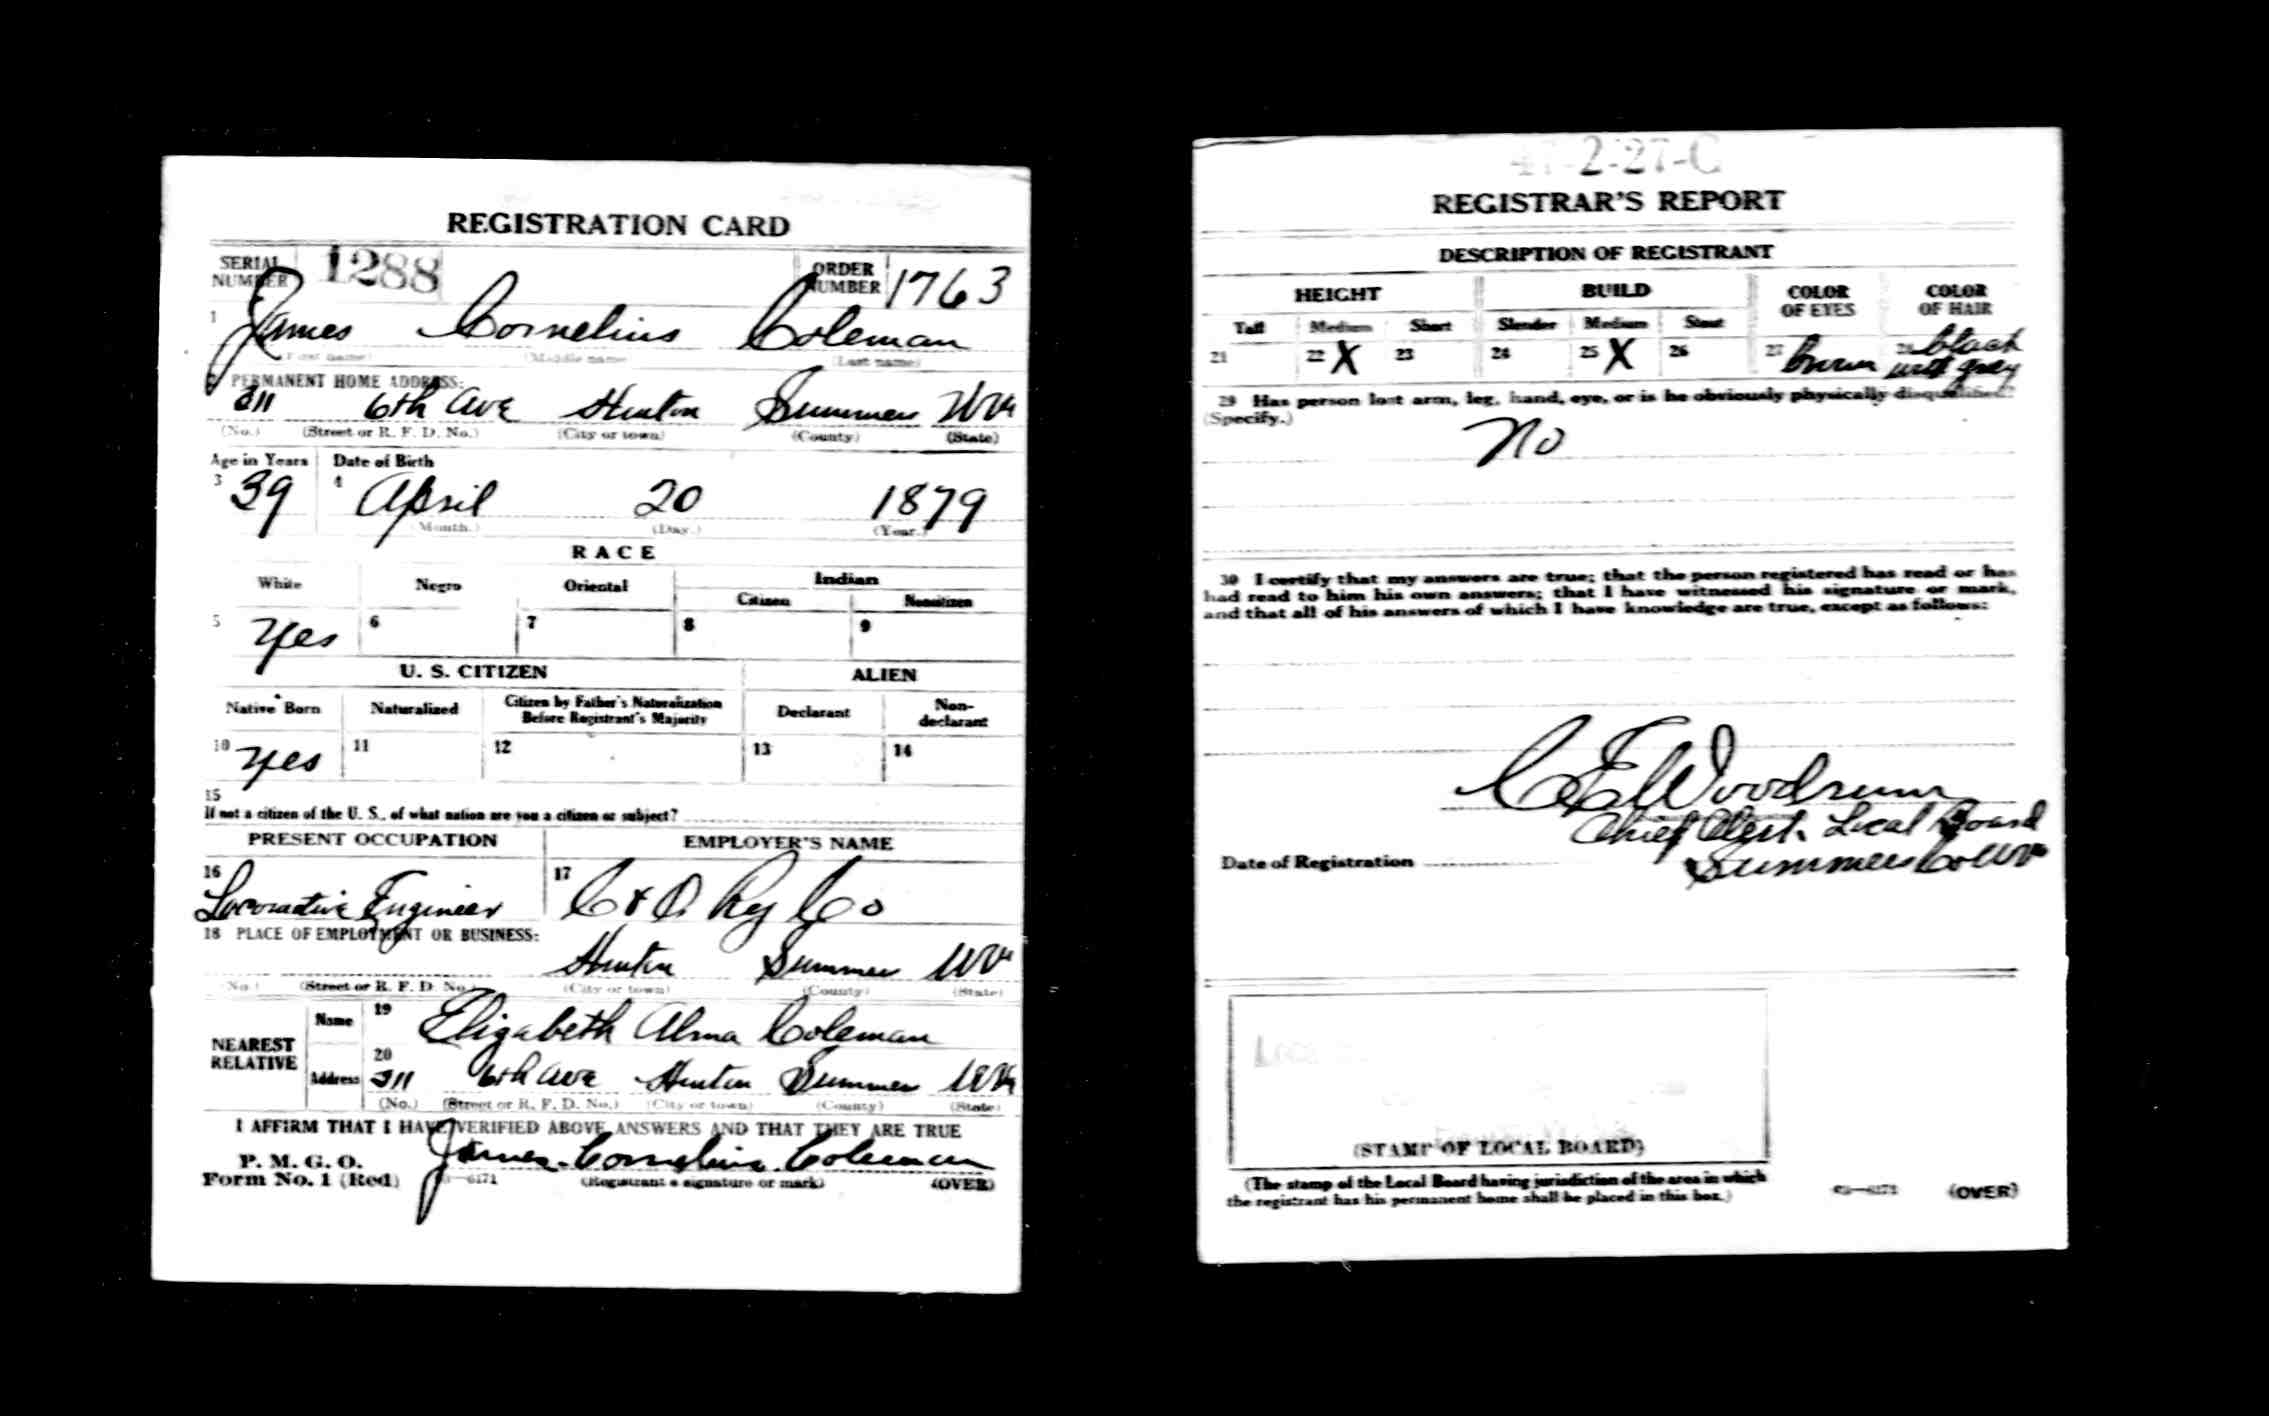 REGISTRATION CARD
SERIAL NUMBER 1288 ORDER NUMBER 1763
1 James Cornelius Coleman
(First name) (Middle name) (Last name)
2 PERMANENT HOME ADDRESS:
311 6th Ave Hinton Summers WVa
(No.) (Street or R. F. D. No.) (City or town) (County) (State)
Age in Years Date of Birth
3 39 4 April 20 1879
(Month.) (Day.) (Year.)
RACE
White Negro Oriental Indian
Citizen Noncitizen
5 Yes 6 7 8 9
U. S. CITIZEN ALIEN
Native Born Naturalized Citizen by Father's Naturalization Before Registrant's Majority Declarant Non-declarant
10 Yes 11 12 13 14
15
If not a citizen of the U. S., of what nation are you a citizen or subject?
PRESENT OCCUPATION EMPLOYER'S NAME
16 Locomotive Engineer 17 C & O Ry Co
18 PLACE OF EMPLOYMENT OR BUSINESS:
Hinton Summers WVa
(No.) (Street or R. F. D. No.) (City or town) (County) (State)
NEAREST RELATIVE Name 19 Elizabeth Alma Coleman
Address 20 311 6th Ave Hinton Summers WVa
(No.) (Street or R. F. D. No.) (City or town) (County) (State)
I AFFIRM THAT I HAVE VERIFIED ABOVE ANSWERS AND THAT THEY ARE TRUE
P. M. G. O.
Form No. 1 (Red) James Cornelius Coleman
(Registrant's signature or mark) (OVER)
47-2-27-C
REGISTRAR'S REPORT
DESCRIPTION OF REGISTRANT
HEIGHT BUILD COLOR OF EYES COLOR OF HAIR
Tall Medium Short Slender Medium Stout
21 22 X 23 24 25 X 26 27 brown 28 black with gray
29 Has person lost arm, leg, hand, eye, or is he obviously physically disqualified?
(Specify.)
No
30 I certify that my answers are true; that the person registered has read or has
had read to him his own answers; that I have witnessed his signature or mark,
and that all of his answers of which I have knowledge are true, except as follows:
C E Woodrum
Chief Clerk Local Board
Date of Registration Summers Co WVa
(STAMP OF LOCAL BOARD)
(The stamp of the Local Board having jurisdiction of the area in which
the registrant has his permanent home shall be placed in this box.)
(OVER)